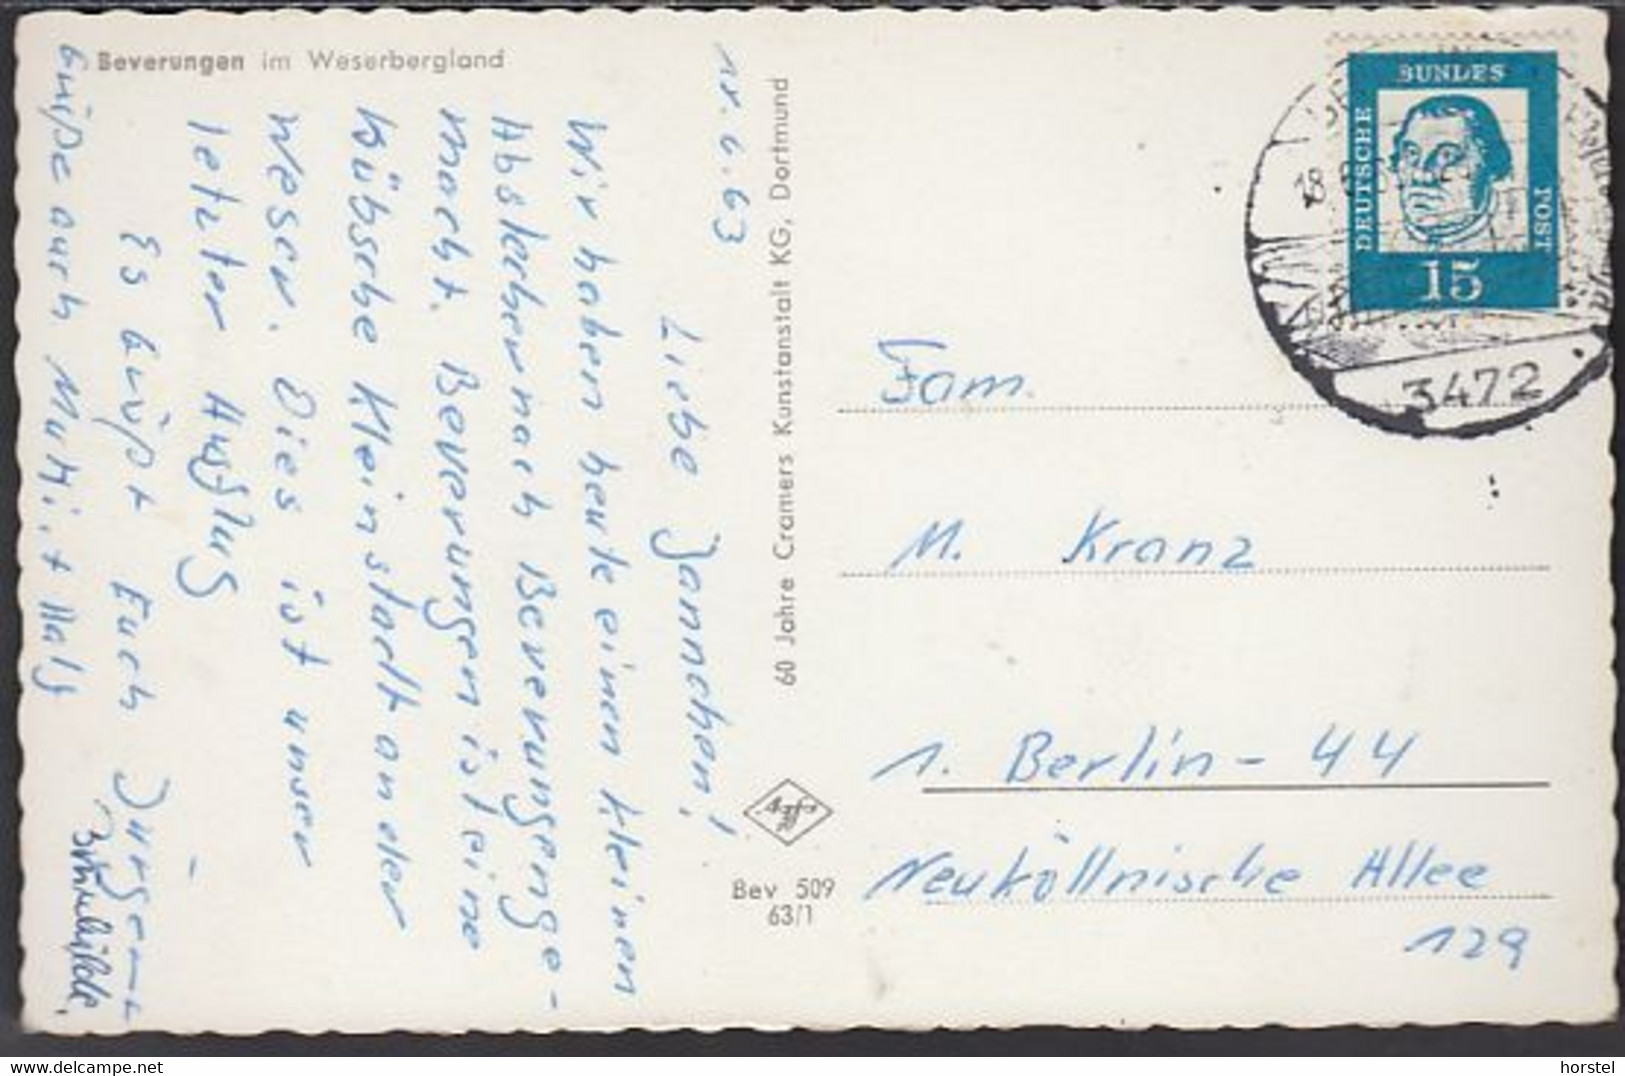 Beverungen im Weserbergland
6.63
Liebe Jannchen!
Wir haben heute einen kleinen
Abstecher nach Beverungen ge-
macht. Beverungen ist eine
hübsche Kleinstadt an der
Weser. Dies ist unser
letzter Ausflug
Es grüßt Euch Jürgen +
Brunhilde.
Grüße auch Mutti +
60 Jahre Cramers Kunstanstalt KG, Dortmund
Agfa
Bev 509
63/1
DEUTSCHE
BUNDES
POST
15
18.
3472
Fam.
M. Kranz
1. Berlin - 44
Neuköllnische Allee
129
horstel